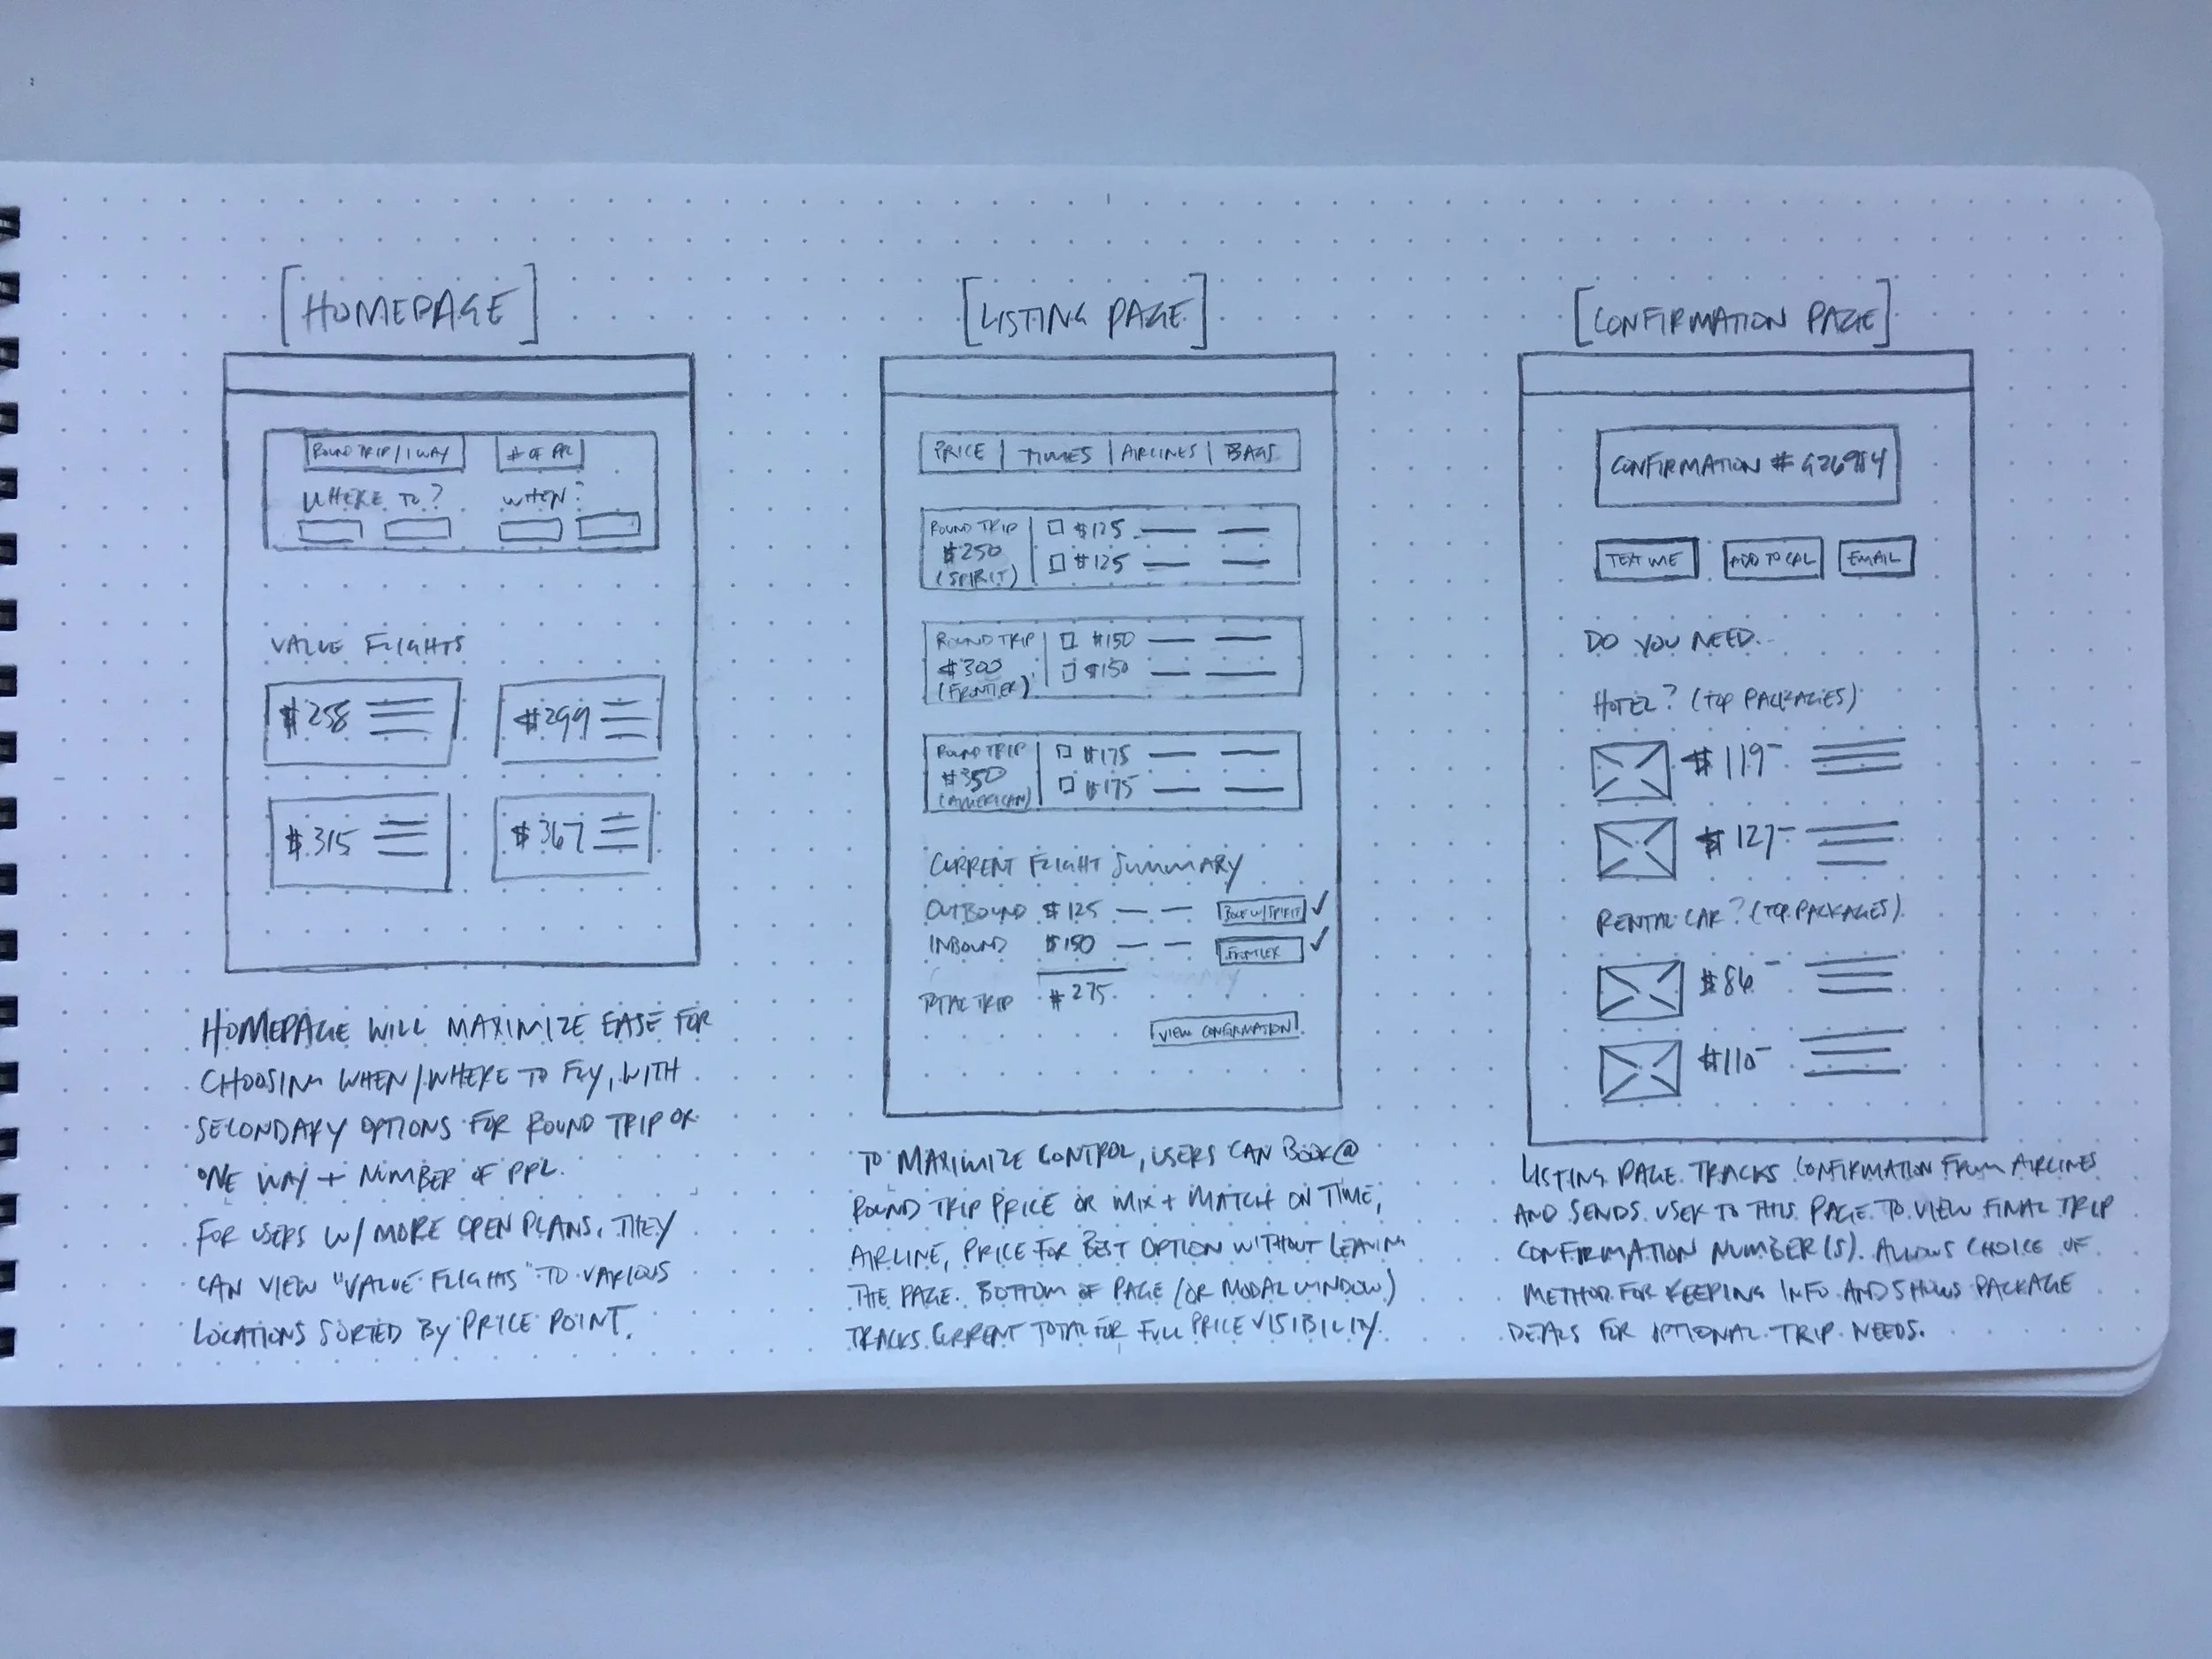 [HOMEPAGE]
ROUND TRIP/1 WAY
# OF PPL
WHERE TO?
WHEN?
VALUE FLIGHTS
$258
$299
$315
$367
HOMEPAGE WILL MAXIMIZE EASE FOR
CHOOSING WHEN/WHERE TO FLY, WITH
SECONDARY OPTIONS FOR ROUND TRIP OR
ONE WAY + NUMBER OF PPL.
FOR USERS W/ MORE OPEN PLANS, THEY
CAN VIEW "VALUE FLIGHTS" TO VARIOUS
LOCATIONS SORTED BY PRICE POINT.
[LISTING PAGE]
PRICE | TIMES | AIRLINES | BAGS
ROUND TRIP
$250
(SPIRIT)
$125
$125
ROUND TRIP
$300
(FRONTIER)
$150
$150
ROUND TRIP
$350
(AMERICAN)
$175
$175
CURRENT FLIGHT SUMMARY
OUTBOUND $125 BOOK W/SPIRIT ✓
INBOUND $150 FRONTIER ✓
TOTAL TRIP $275
VIEW CONFIRMATION
TO MAXIMIZE CONTROL, USERS CAN BOOK @
ROUND TRIP PRICE OR MIX + MATCH ON TIME,
AIRLINE, PRICE FOR BEST OPTION WITHOUT LEAVING
THE PAGE. BOTTOM OF PAGE (OR MODAL WINDOW)
TRACKS CURRENT TOTAL FOR FULL PRICE VISIBILITY.
[CONFIRMATION PAGE]
CONFIRMATION #
TEXT ME
ADD TO CAL
EMAIL
DO YOU NEED...
HOTEL? (TOP PACKAGES)
$119-
$127-
RENTAL CAR? (TOP PACKAGES)
$86-
$110-
LISTING PAGE TRACKS CONFIRMATION FROM AIRLINES
AND SENDS USER TO THIS PAGE TO VIEW FINAL TRIP
CONFIRMATION NUMBER(S). ALLOWS CHOICE OF
METHOD FOR KEEPING INFO AND SHOWS PACKAGE
DEALS FOR OPTIONAL TRIP NEEDS.